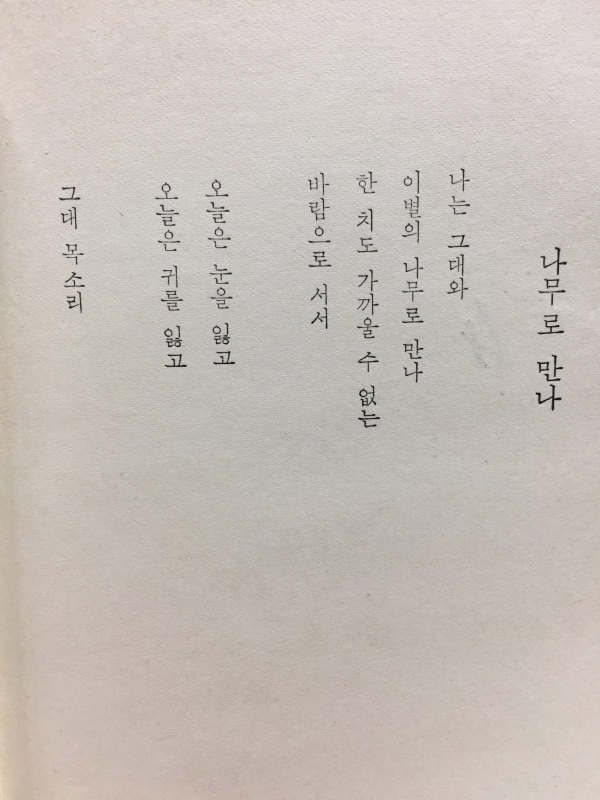 나무로 만나
나는 그대와
이별의 나무로 만나
한 치도 가까울 수 없는
바람으로 서서
오늘은 눈을 잃고
오늘은 귀를 잃고
그대 목소리